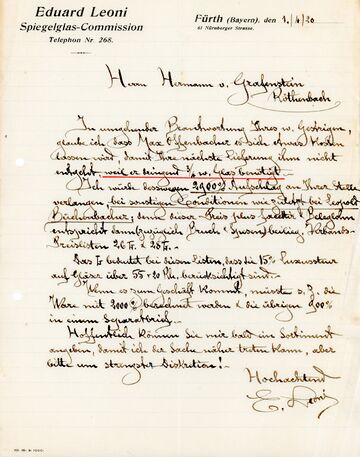 Eduard Leoni
Spiegelglas-Commission
Telephon Nr. 268.
Fürth (Bayern), den 1./6/20
61 Nürnberger Strasse.
Herrn Hermann v. Grafenstein
Röthenbach
In umgehender Beantwortung Ihres w. Gestrigen,
glaube ich dass Max Offenbacher es sich etwas kosten
lassen wird, damit Ihre nächste Lieferung ihm nicht
entgeht, weil er dringend 3/4 w. Glas benötigt.
Ich würde deswegen 2900% Aufschlag an Ihrer Stelle
verlangen, bei sonstigen Conditionen wie zuletzt bei Leopold
Büchenbacher; denn dieser Preis plus
entspricht dann (zuzüglich Bruch & Spesen) beilieg. Verbands-
Preislisten 26 II. & 26 III.
Das bedeutet bei diesen Listen, dass die 15% Luxussteuer
auf Gläser über berücksichtigt sind.
Wenn es zum Geschäft kommt, müsste s. Z. die
Ware mit 2000% berechnet werden & die übrigen 900%
in einem Separatbrief.
Hoffentlich können Sie mir bald ein Sortiment
angeben, damit ich der Sache näher treten kann, aber
bitte um strengster Diskretion!
Hochachtend
E. Leoni